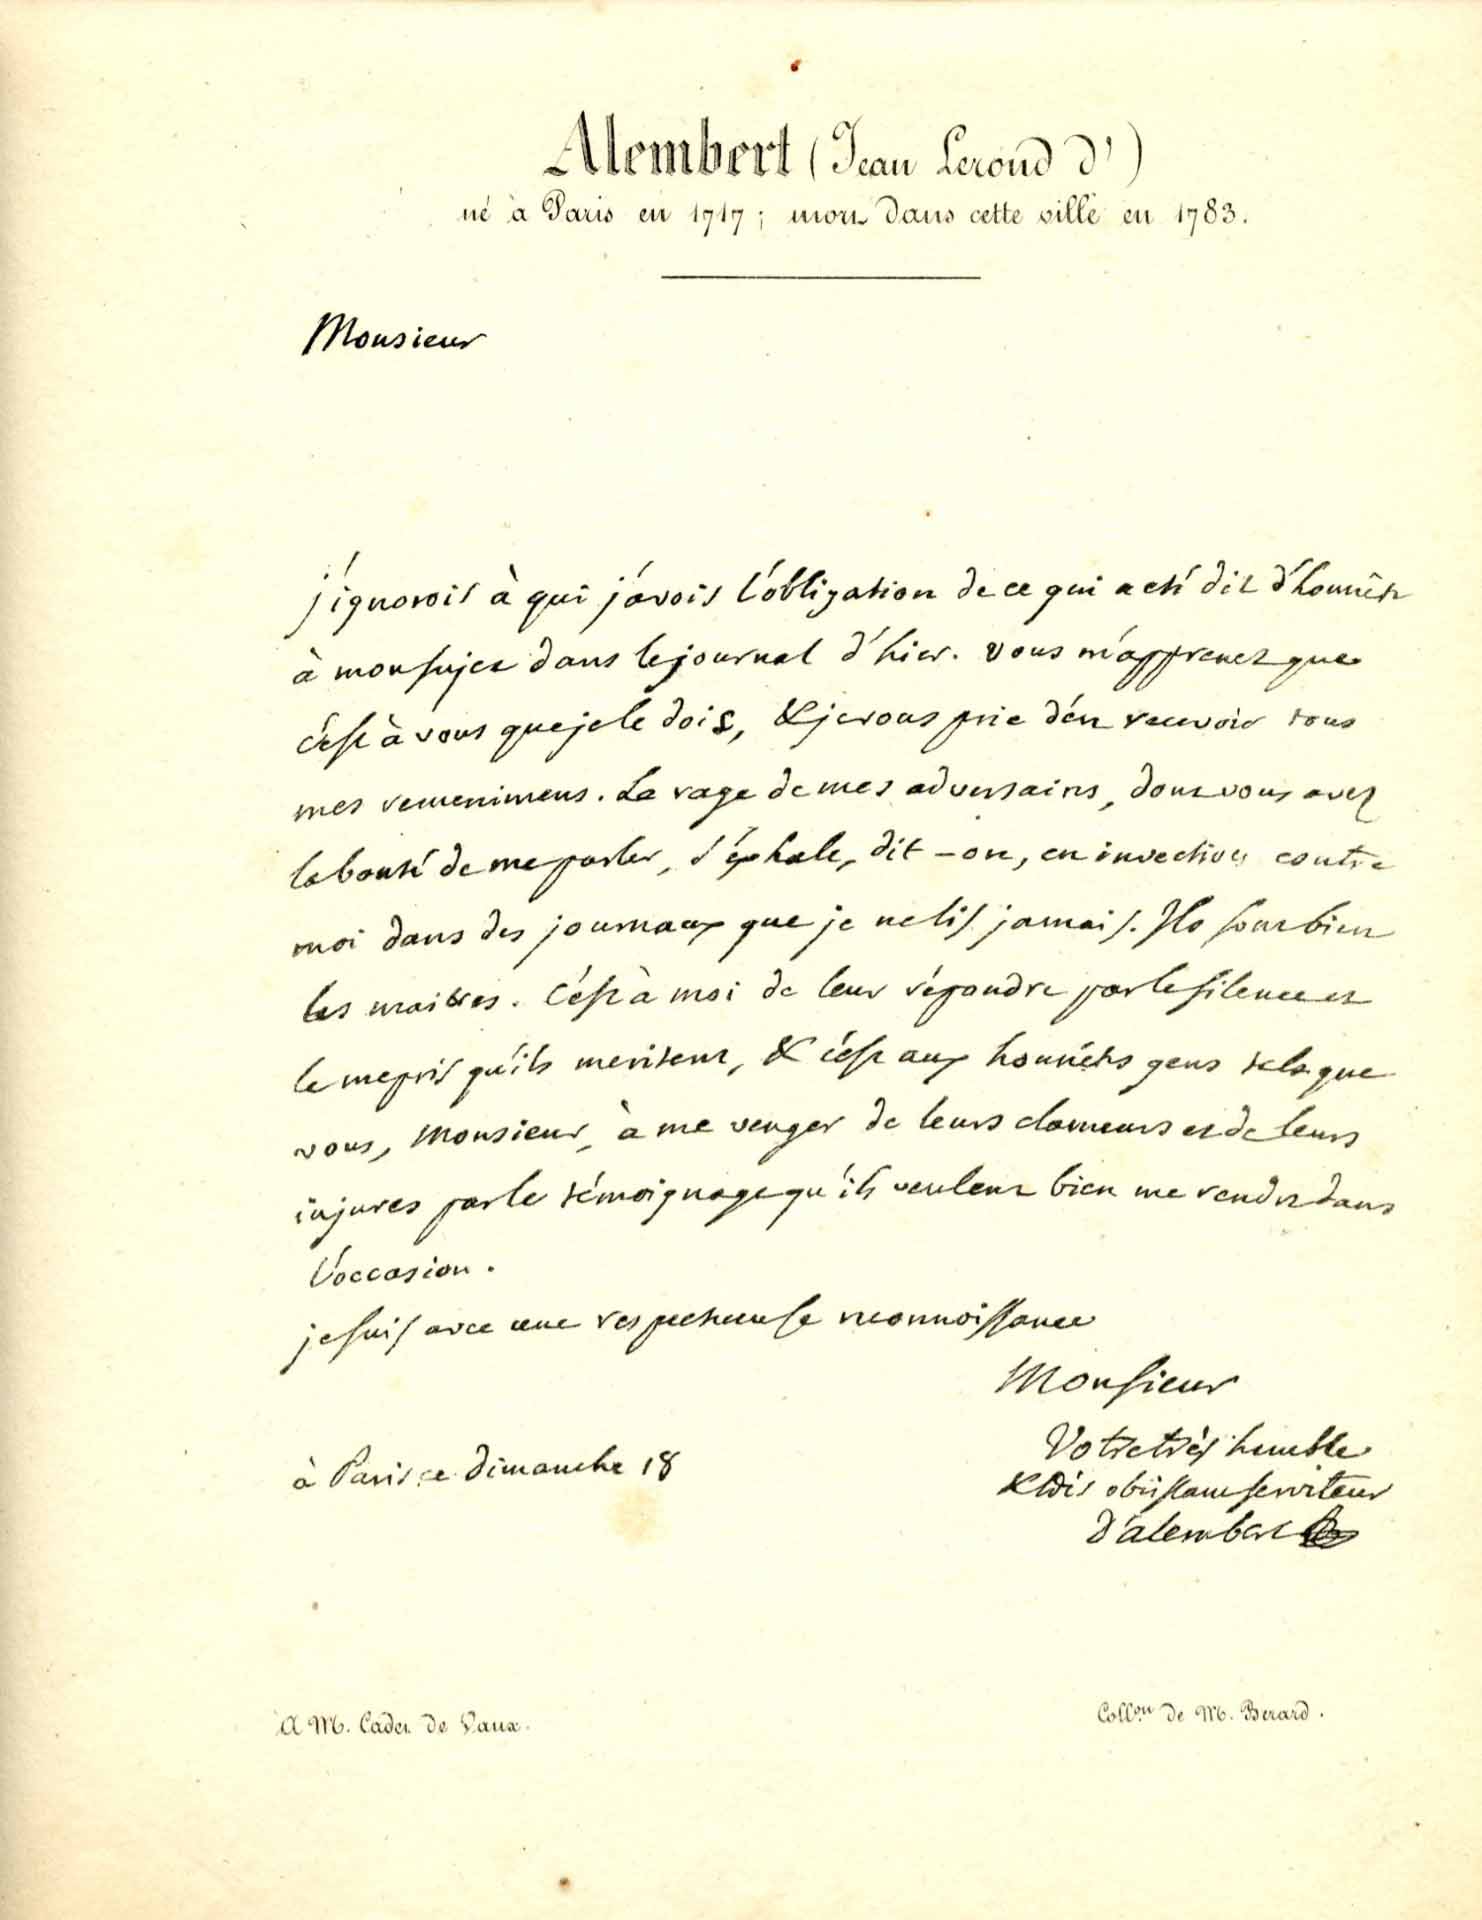 Alembert (Jean Lerond d')
né à Paris en 1717; mort dans cette ville en 1783.
Monsieur
j'ignorois à qui j'avois l'obligation de ce qui a eté dit d'honnête
à mon sujet dans le journal d'hier. vous m'apprenez que
c'est à vous que je le dois, & je vous prie d'en recevoir tous
mes remercimens. La rage de mes adversaires, dont vous avez
la bonté de me parler, s'exhale, dit-on, en invectives contre
moi dans des journaux que je ne lis jamais. Ils sont bien
les maitres. C'est à moi de leur répondre par le silence et
le mepris qu'ils meritent, & c'est aux honnêtes gens tels que
vous, Monsieur, à me venger de leurs clameurs et de leurs
injures par le témoignage qu'ils veulent bien me rendre dans
l'occasion.
je suis avec une respectueuse reconnoissance
Monsieur
Votre très humble
& très obéissant serviteur
à Paris ce dimanche 18
d'alembert
A M. Cadet de Vaux.
Collon de M. Berard.